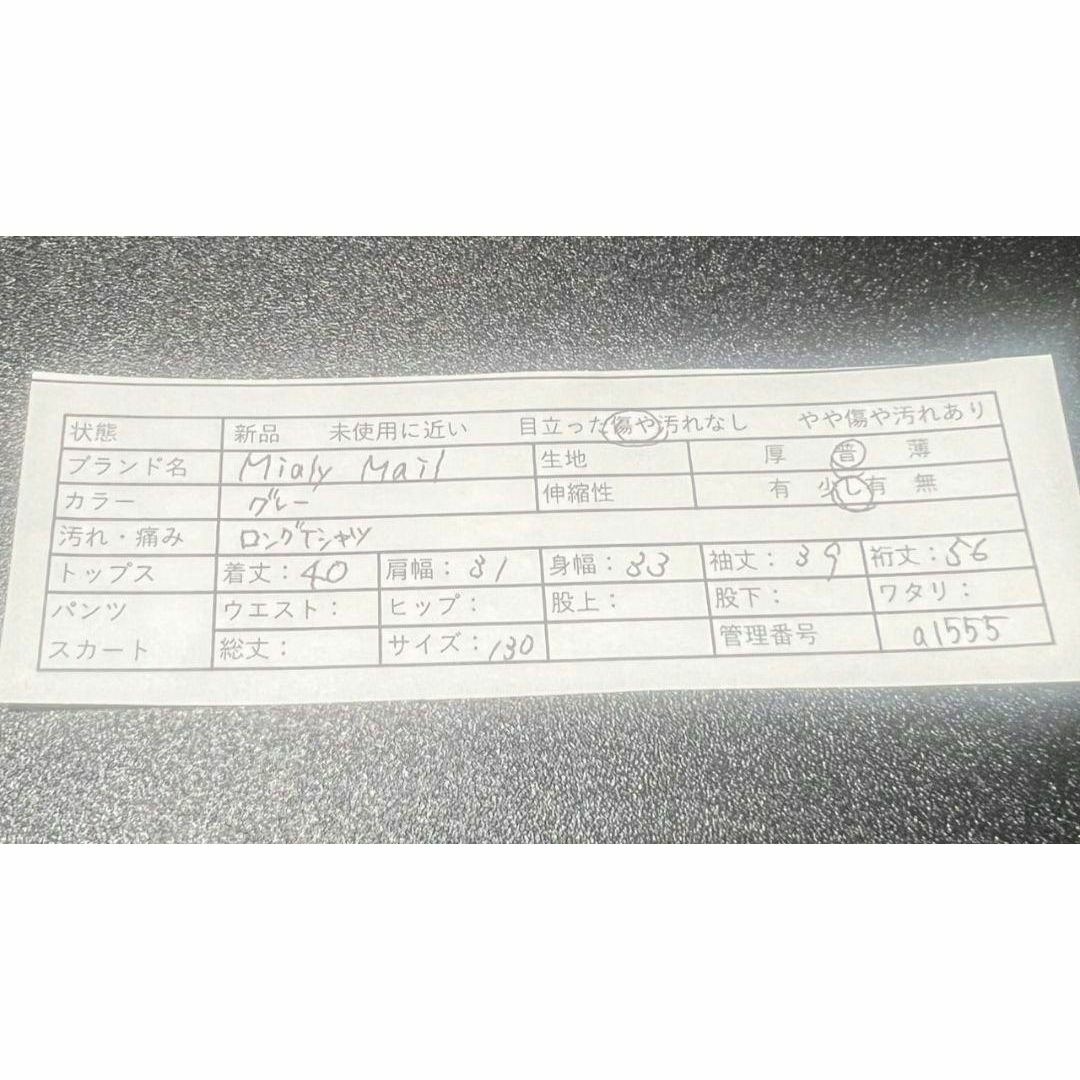 状態 新品 未使用に近い 目立った傷や汚れなし やや傷や汚れあり
ブランド名 Mialy Mail 生地 厚 普 薄
カラー グレー 伸縮性 有 少し有 無
汚れ・痛み ロングTシャツ
トップス 着丈：40 肩幅：31 身幅：33 袖丈：39 裄丈：56
パンツ ウエスト： ヒップ： 股上： 股下： ワタリ：
スカート 総丈： サイズ：130 管理番号 a1555